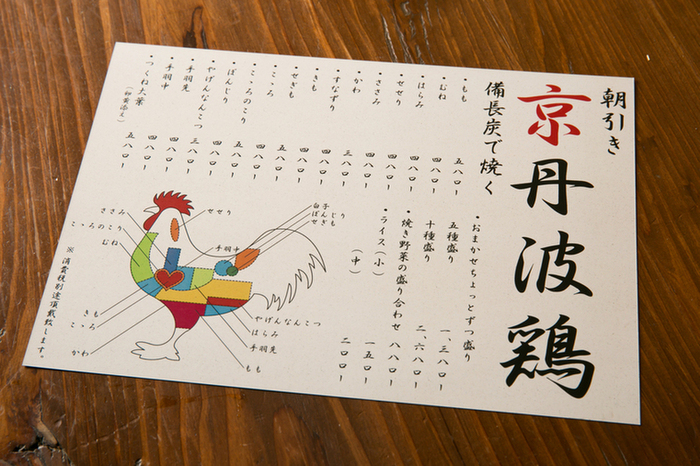 朝引き
京丹波鶏
備長炭で焼く
・もも 五八〇ー
・むね 四八〇ー
・はらみ 四八〇ー
・せせり 四八〇ー
・ささみ 四八〇ー
・かわ 三八〇ー
・すなずり 四八〇ー
・きも 四八〇ー
・せぎも 四八〇ー
・こころ 四八〇ー
・こころのこり 五八〇ー
・ぼんじり
・やげんなんこつ
・手羽先 四八〇ー
・手羽中 四八〇ー
・つくね大葉 五八〇ー
(卵黄添え)
・おまかせちょっとずつ盛り
五種盛り 一、三八〇ー
十種盛り 二、六八〇ー
・焼き野菜の盛り合わせ 八八〇ー
・ライス(小) 一五〇ー
(中) 二〇〇ー
ささみ
こころのこり
むね
せせり
手羽中
白子
ぼんじり
せぎも
きも
こころ
かわ
やげんなんこつ
はらみ
手羽先
もも
※消費税別途頂戴致します。